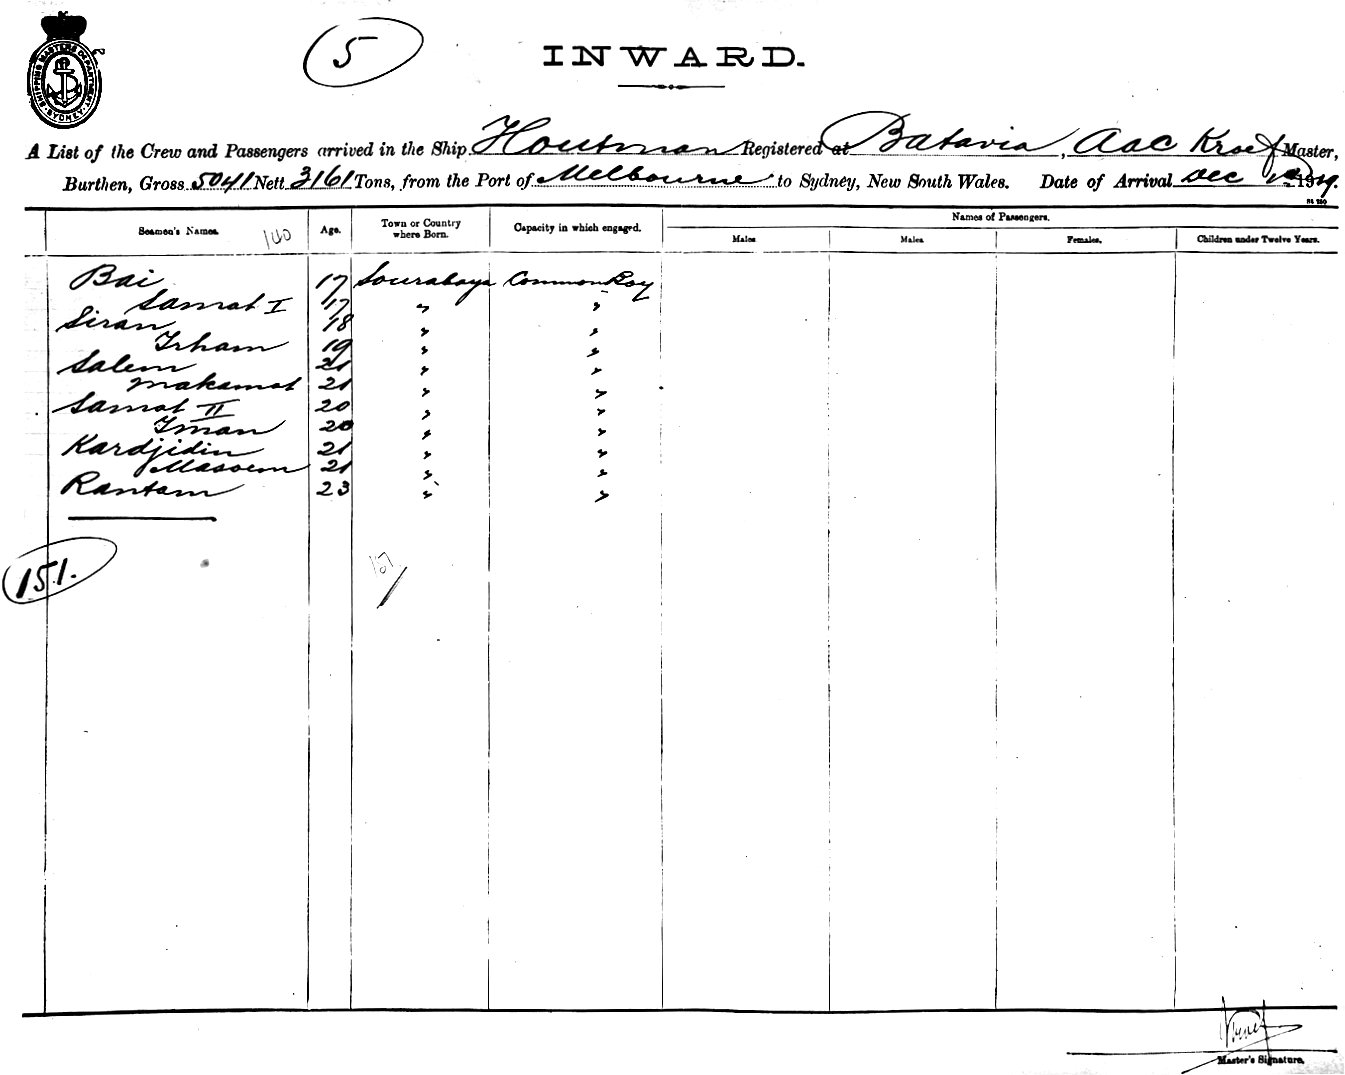 SHIPPING MASTERS DEPARTMENT SYDNEY
5
INWARD.
A List of the Crew and Passengers arrived in the Ship Houtman Registered at Batavia, Aac Kroef Master,
Burthen, Gross 5041 Nett 3161 Tons, from the Port of Melbourne to Sydney, New South Wales. Date of Arrival Dec 1919.
Names of Passengers.
Seamen's Names. Age. Town or Country where Born. Capacity in which engaged. Males Males Females. Children under Twelve Years.
Bai 17 Sourabaya Common Boy
Samat I 17 " "
Siran 18 " "
Irham 19 " "
Salem 21 " "
Makamat 21 " "
Samat II 20 " "
Iman 20 " "
Kardjidin 21 " "
Massem 21 " "
Rantam 23 " "
151.
Master's Signature.